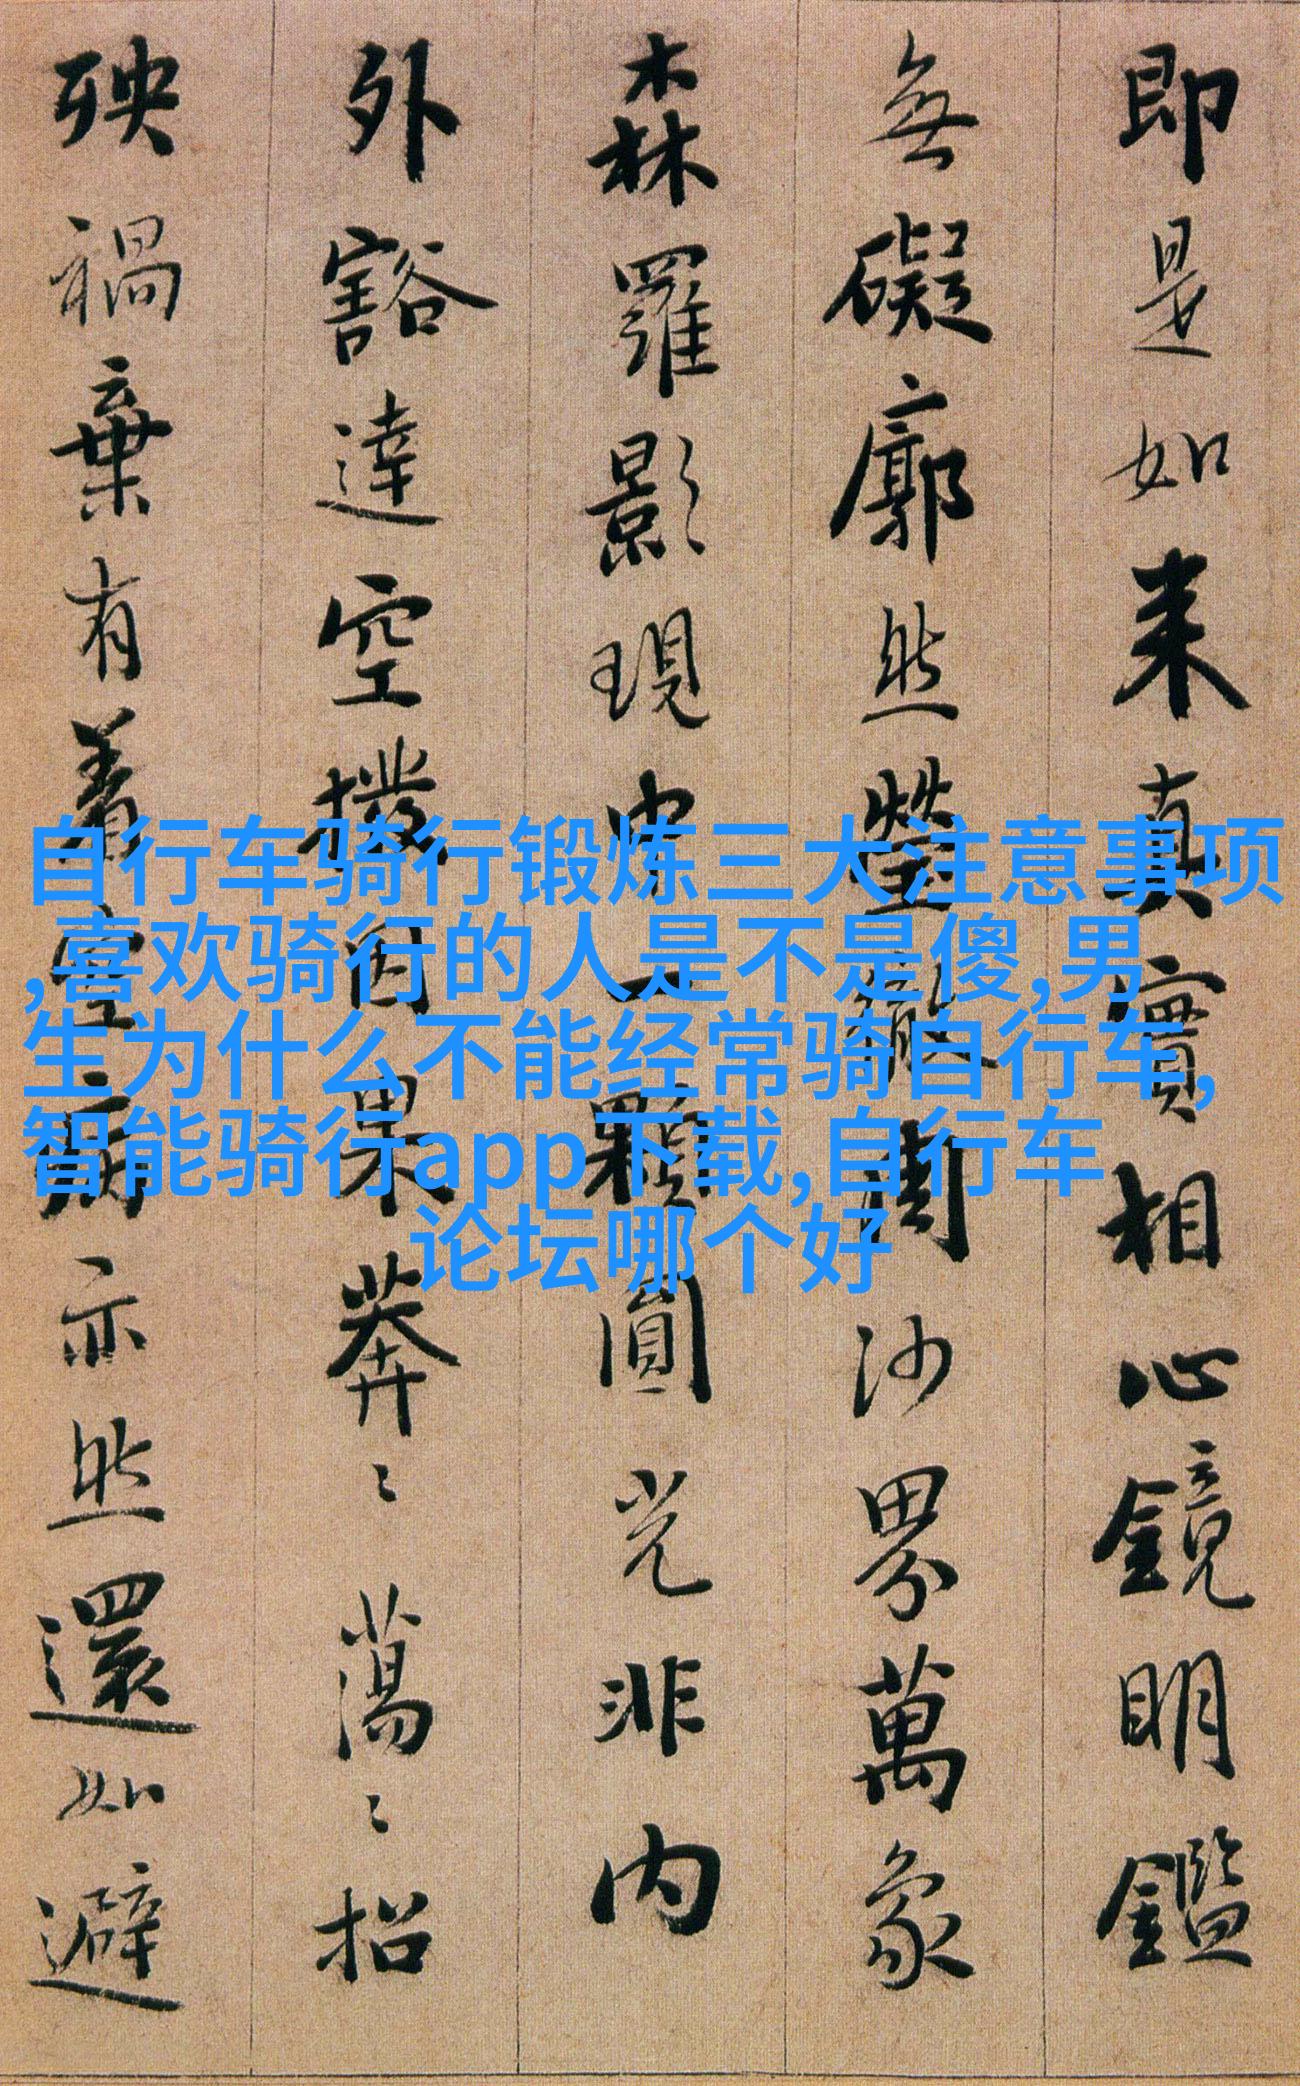 即是如来真實相心鏡明鑑
無礙廓然瑩徹周沙界萬象
森羅影現中一顆圓光非内
外豁達空撥因果莽〻蕩〻招
殃禍棄有着空病亦然還如避
自行车骑行锻炼三大注意事项
,喜欢骑行的人是不是傻,男
生为什么不能经常骑自行车,
智能骑行app下载,自行车
论坛哪个好